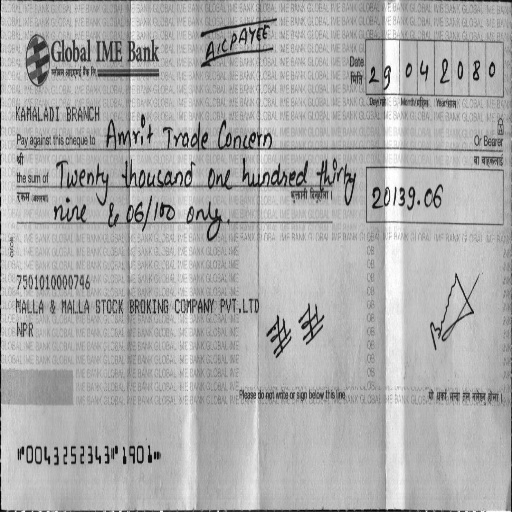 A/C PAYEE
Global IME Bank
ग्लोबल आइएमई बैंक लि.
Date मिति 29 04 2080
Day/गते Month/महिना Year/साल
KAMALADI BRANCH
Pay against this cheque to Amrit Trade Concern Or Bearer
श्री वा वाहकलाई
the sum of Twenty thousand one hundred thirty
रकम अक्षरमा भुक्तानी दिनुहोला । 20139.06
nine & 06/100 only.
7501010000746
MALLA & MALLA STOCK BROKING COMPANY PVT.LTD
NPR
Please do not write or sign below this line
⑈00432523431⑈1901⑈